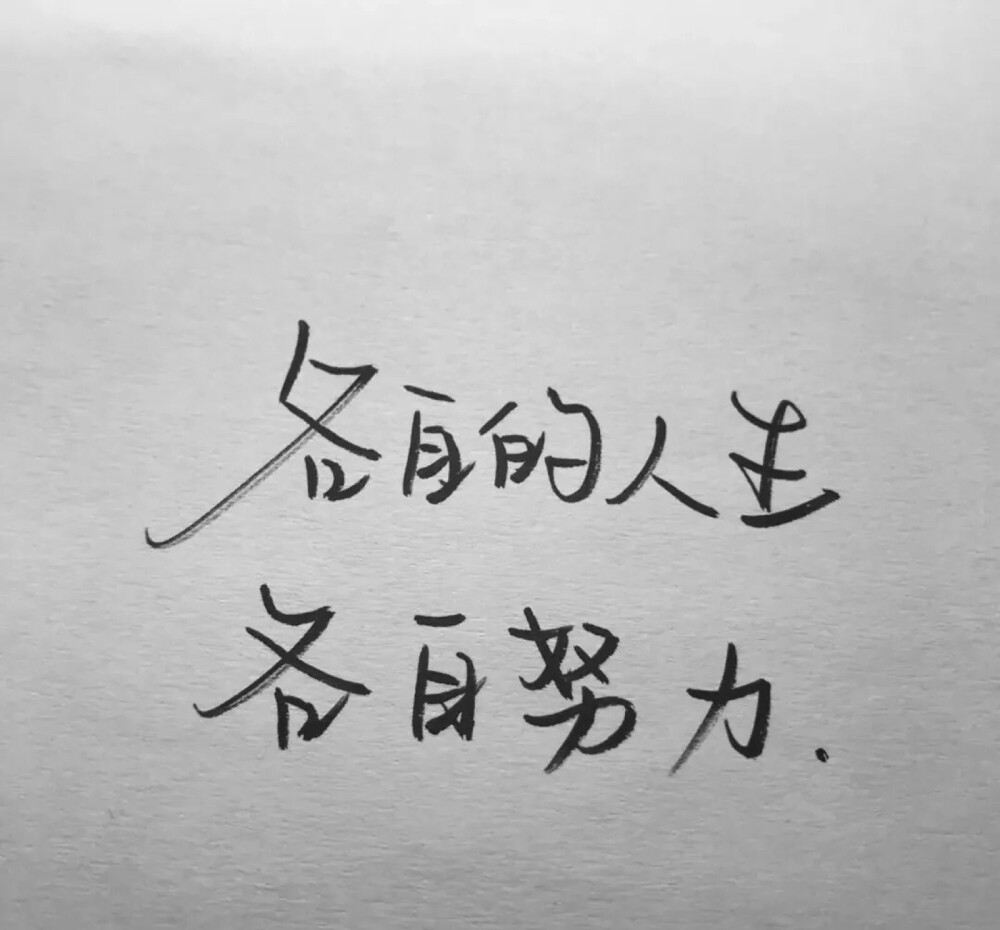 各自的人生
各自努力.